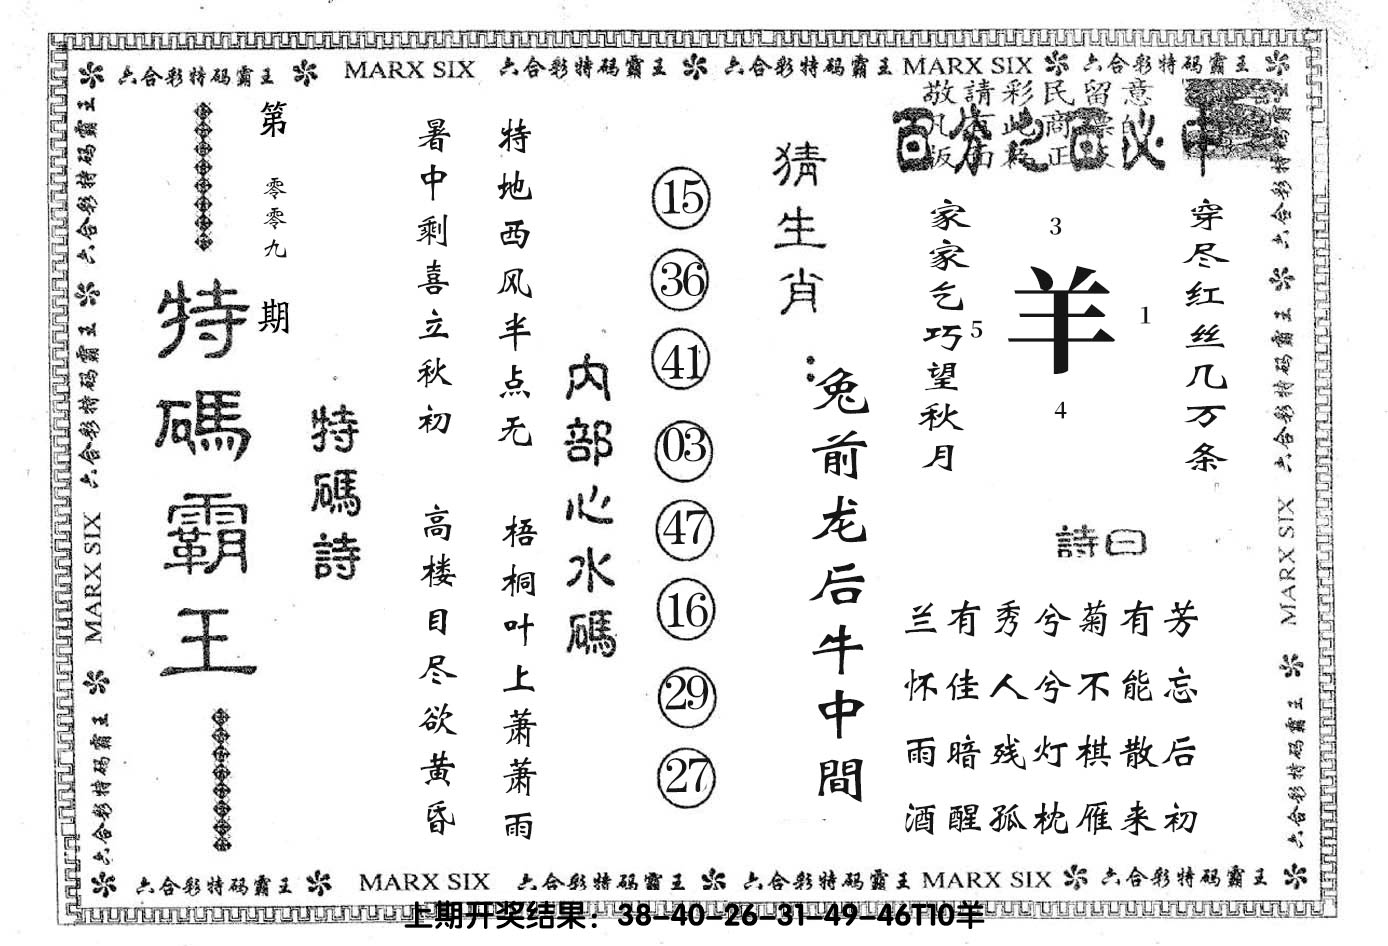 六合彩特码霸王 MARX SIX 六合彩特码霸王 六合彩特码霸王 MARX SIX 六合彩特码霸王
敬請彩民留意
百分之百必中
第零零九期
特碼霸王
特碼詩
暑中剩喜立秋初
特地西风半点无
高楼目尽欲黄昏
梧桐叶上萧萧雨
内部心水碼
15
36
41
03
47
16
29
27
猜生肖：
兔前龙后牛中間
家家乞巧望秋月
穿尽红丝几万条
3
5
羊
1
4
詩曰
兰有秀兮菊有芳
怀佳人兮不能忘
雨暗残灯棋散后
酒醒孤枕雁来初
六合彩特码霸王 六合彩特码霸王 MARX SIX 六合彩特码霸王
六合彩特码霸王 六合彩特码霸王 MARX SIX 六合彩特码霸王
六合彩特码霸王 MARX SIX 六合彩特码霸王 六合彩特码霸王 MARX SIX 六合彩特码霸王
上期开奖结果：38-40-26-31-49-46T10羊